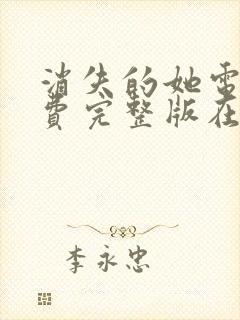 消失的她電
費完整版在
李永忠